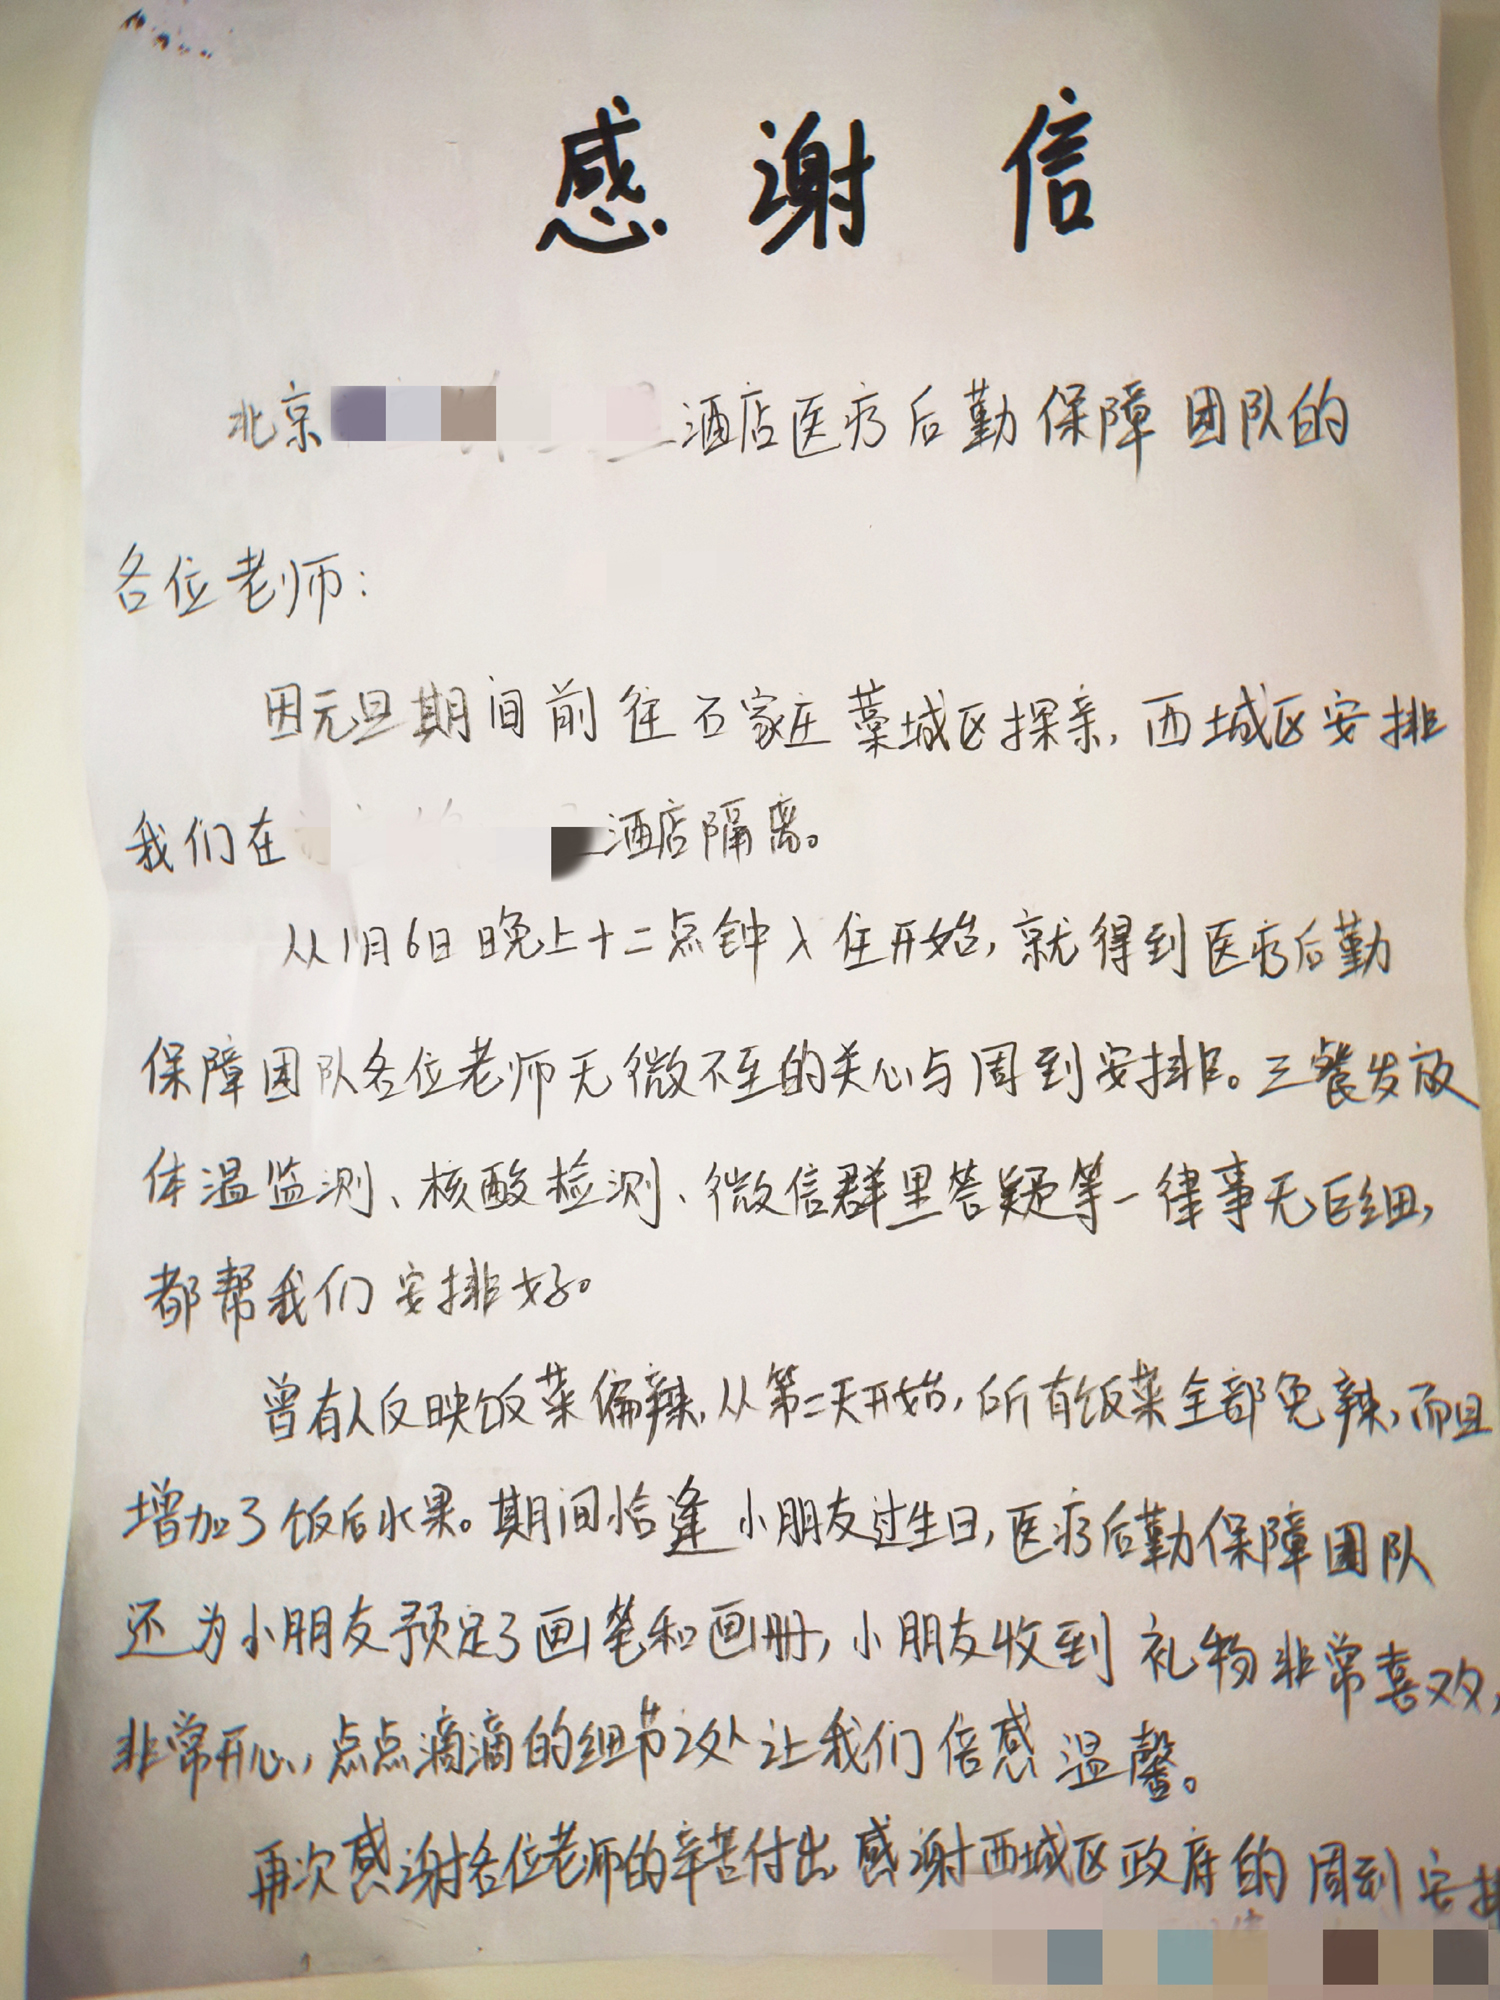 感谢信
北京 酒店医疗后勤保障团队的
各位老师：
因元旦期间前往石家庄藁城区探亲，西城区安排
我们在 酒店隔离。
从1月6日晚上十二点钟入住开始，就得到医疗后勤
保障团队各位老师无微不至的关心与周到安排。三餐发放
体温监测、核酸检测、微信群里答疑等一律事无巨细，
都帮我们安排好。
曾有人反映饭菜偏辣，从第二天开始，所有饭菜全部免辣，而且
增加了饭后水果。期间恰逢小朋友过生日，医疗后勤保障团队
还为小朋友预定了画笔和画册，小朋友收到礼物非常喜欢，
非常开心，点点滴滴的细节之处让我们倍感温馨。
再次感谢各位老师的辛苦付出 感谢西城区政府的周到安排